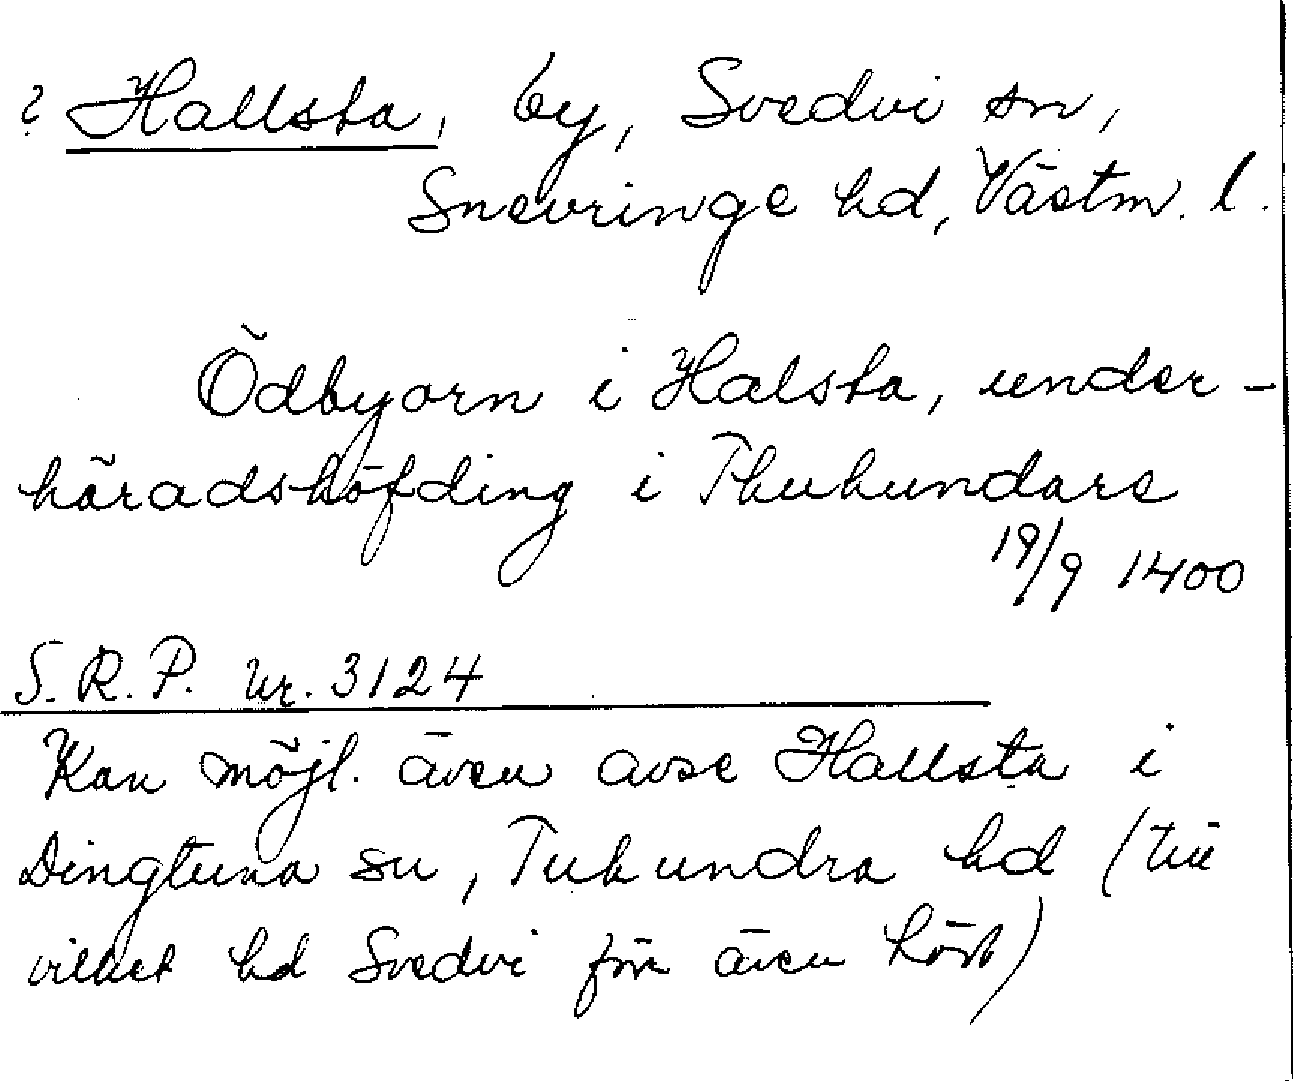 ? Hallsta, by, Svedvi sn,
Snevringe hd, Västm. l.
Ödbyorn i Halsta, under-
häradshöfding i Thuhundare
19/9 1400
S.R.P. nr. 3124
Kan möjl. även avse Hallsta i
Dingtuna sn, Tuhundra hd (till
vilket hd Svedvi förr även hört)